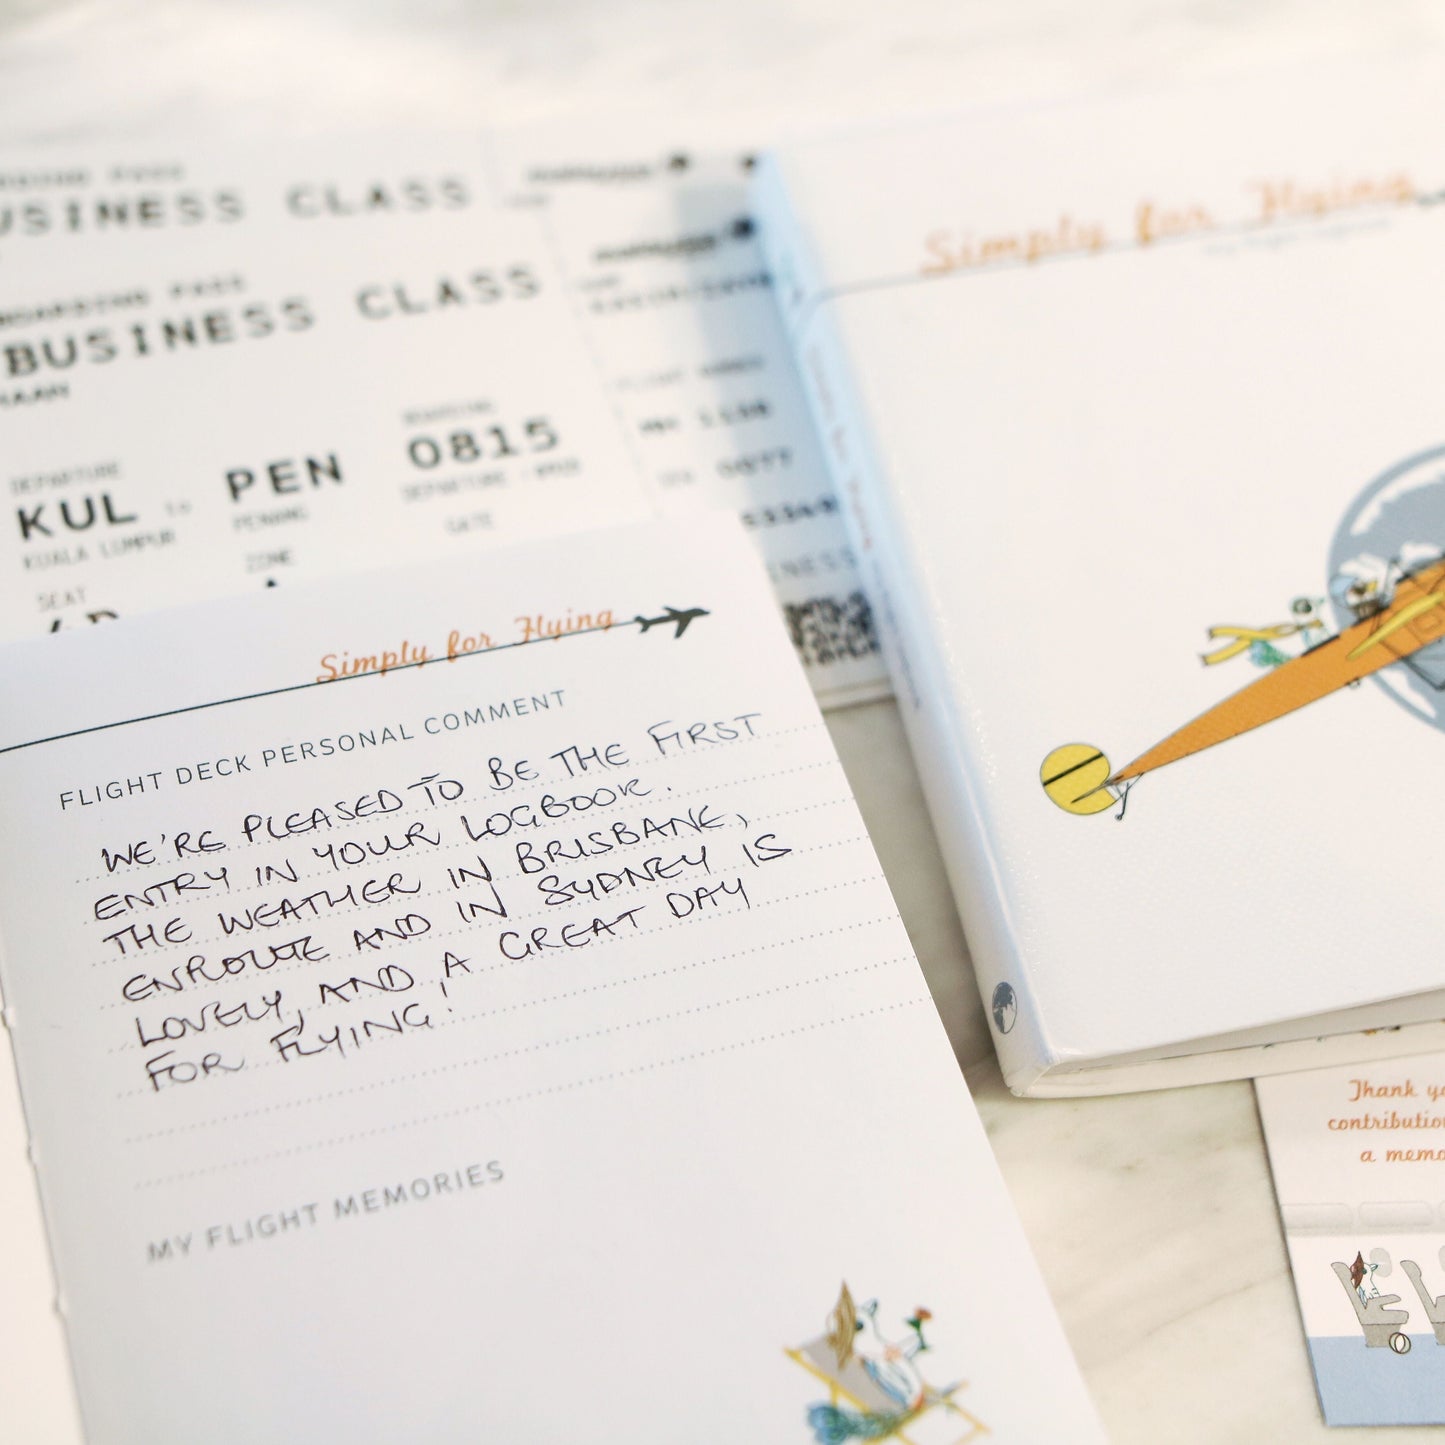 BOARDING PASS
BUSINESS CLASS
BOARDING PASS
BUSINESS CLASS
DEPARTURE
KUL to
KUALA LUMPUR
PEN
PENANG
BOARDING
0815
DEPARTURE
GATE
SEAT
ZONE
FLIGHT
Simply for Flying
FLIGHT DECK PERSONAL COMMENT
WE'RE PLEASED TO BE THE FIRST
ENTRY IN YOUR LOGBOOK.
THE WEATHER IN BRISBANE,
ENROUTE AND IN SYDNEY IS
LOVELY, AND A GREAT DAY
FOR FLYING!
MY FLIGHT MEMORIES
Simply for Flying
Thank
a